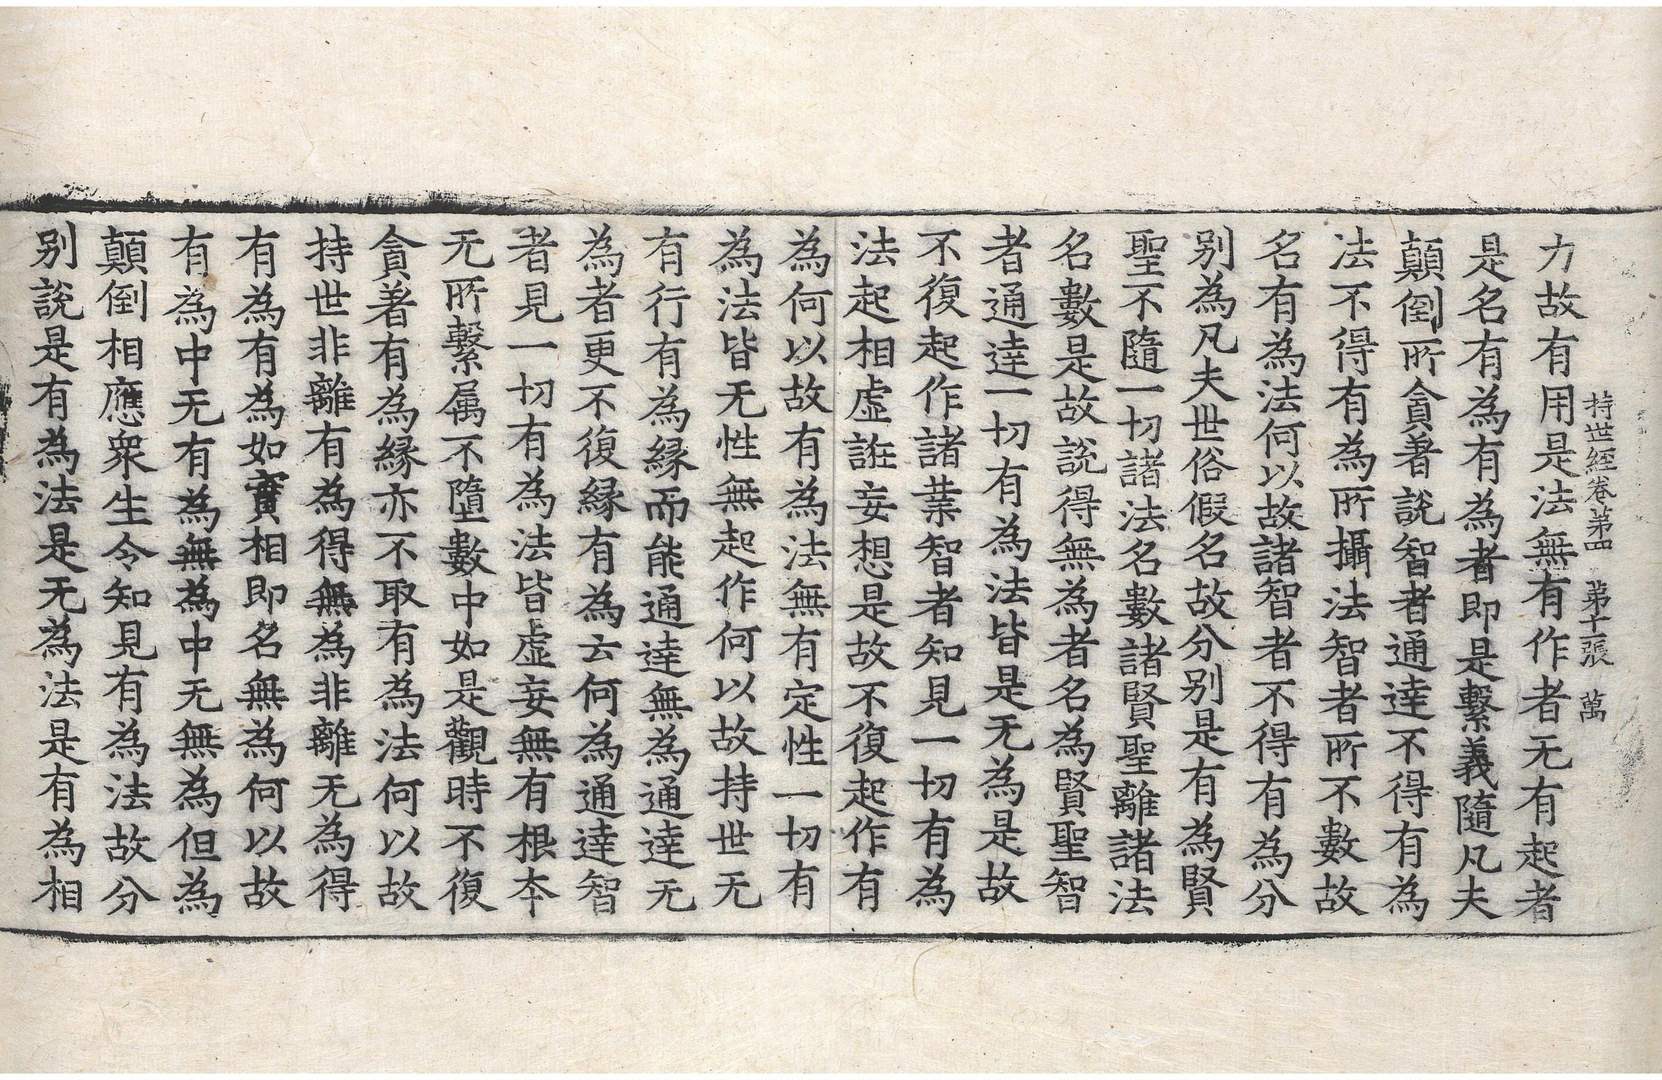 持世經卷第四　第十張　萬
力故有用是法無有作者无有起者
是名有為有為者即是繫義隨凡夫
顛倒所貪著說智者通達不得有為
法不得有為所攝法智者所不數故
名有為法何以故諸智者不得有為分
别為凡夫世俗假名故分别是有為賢
聖不隨一切諸法名數諸賢聖離諸法
名數是故說得無為者名為賢聖智
者通達一切有為法皆是无為是故
不復起作諸業智者知見一切有為
法起相虛誑妄想是故不復起作有
為何以故有為法無有定性一切有
為法皆无性無起作何以故持世无
有行有為緣而能通達無為通達无
為者更不復緣有為云何為通達智
者見一切有為法皆虛妄無有根本
无所繫属不墮數中如是觀時不復
貪著有為緣亦不取有為法何以故
持世非離有為得無為非離无為得
有為有為如實相即名無為何以故
有為中无有為無為中无無為但為
顛倒相應眾生令知見有為法故分
别說是有為法是无為法是有為相